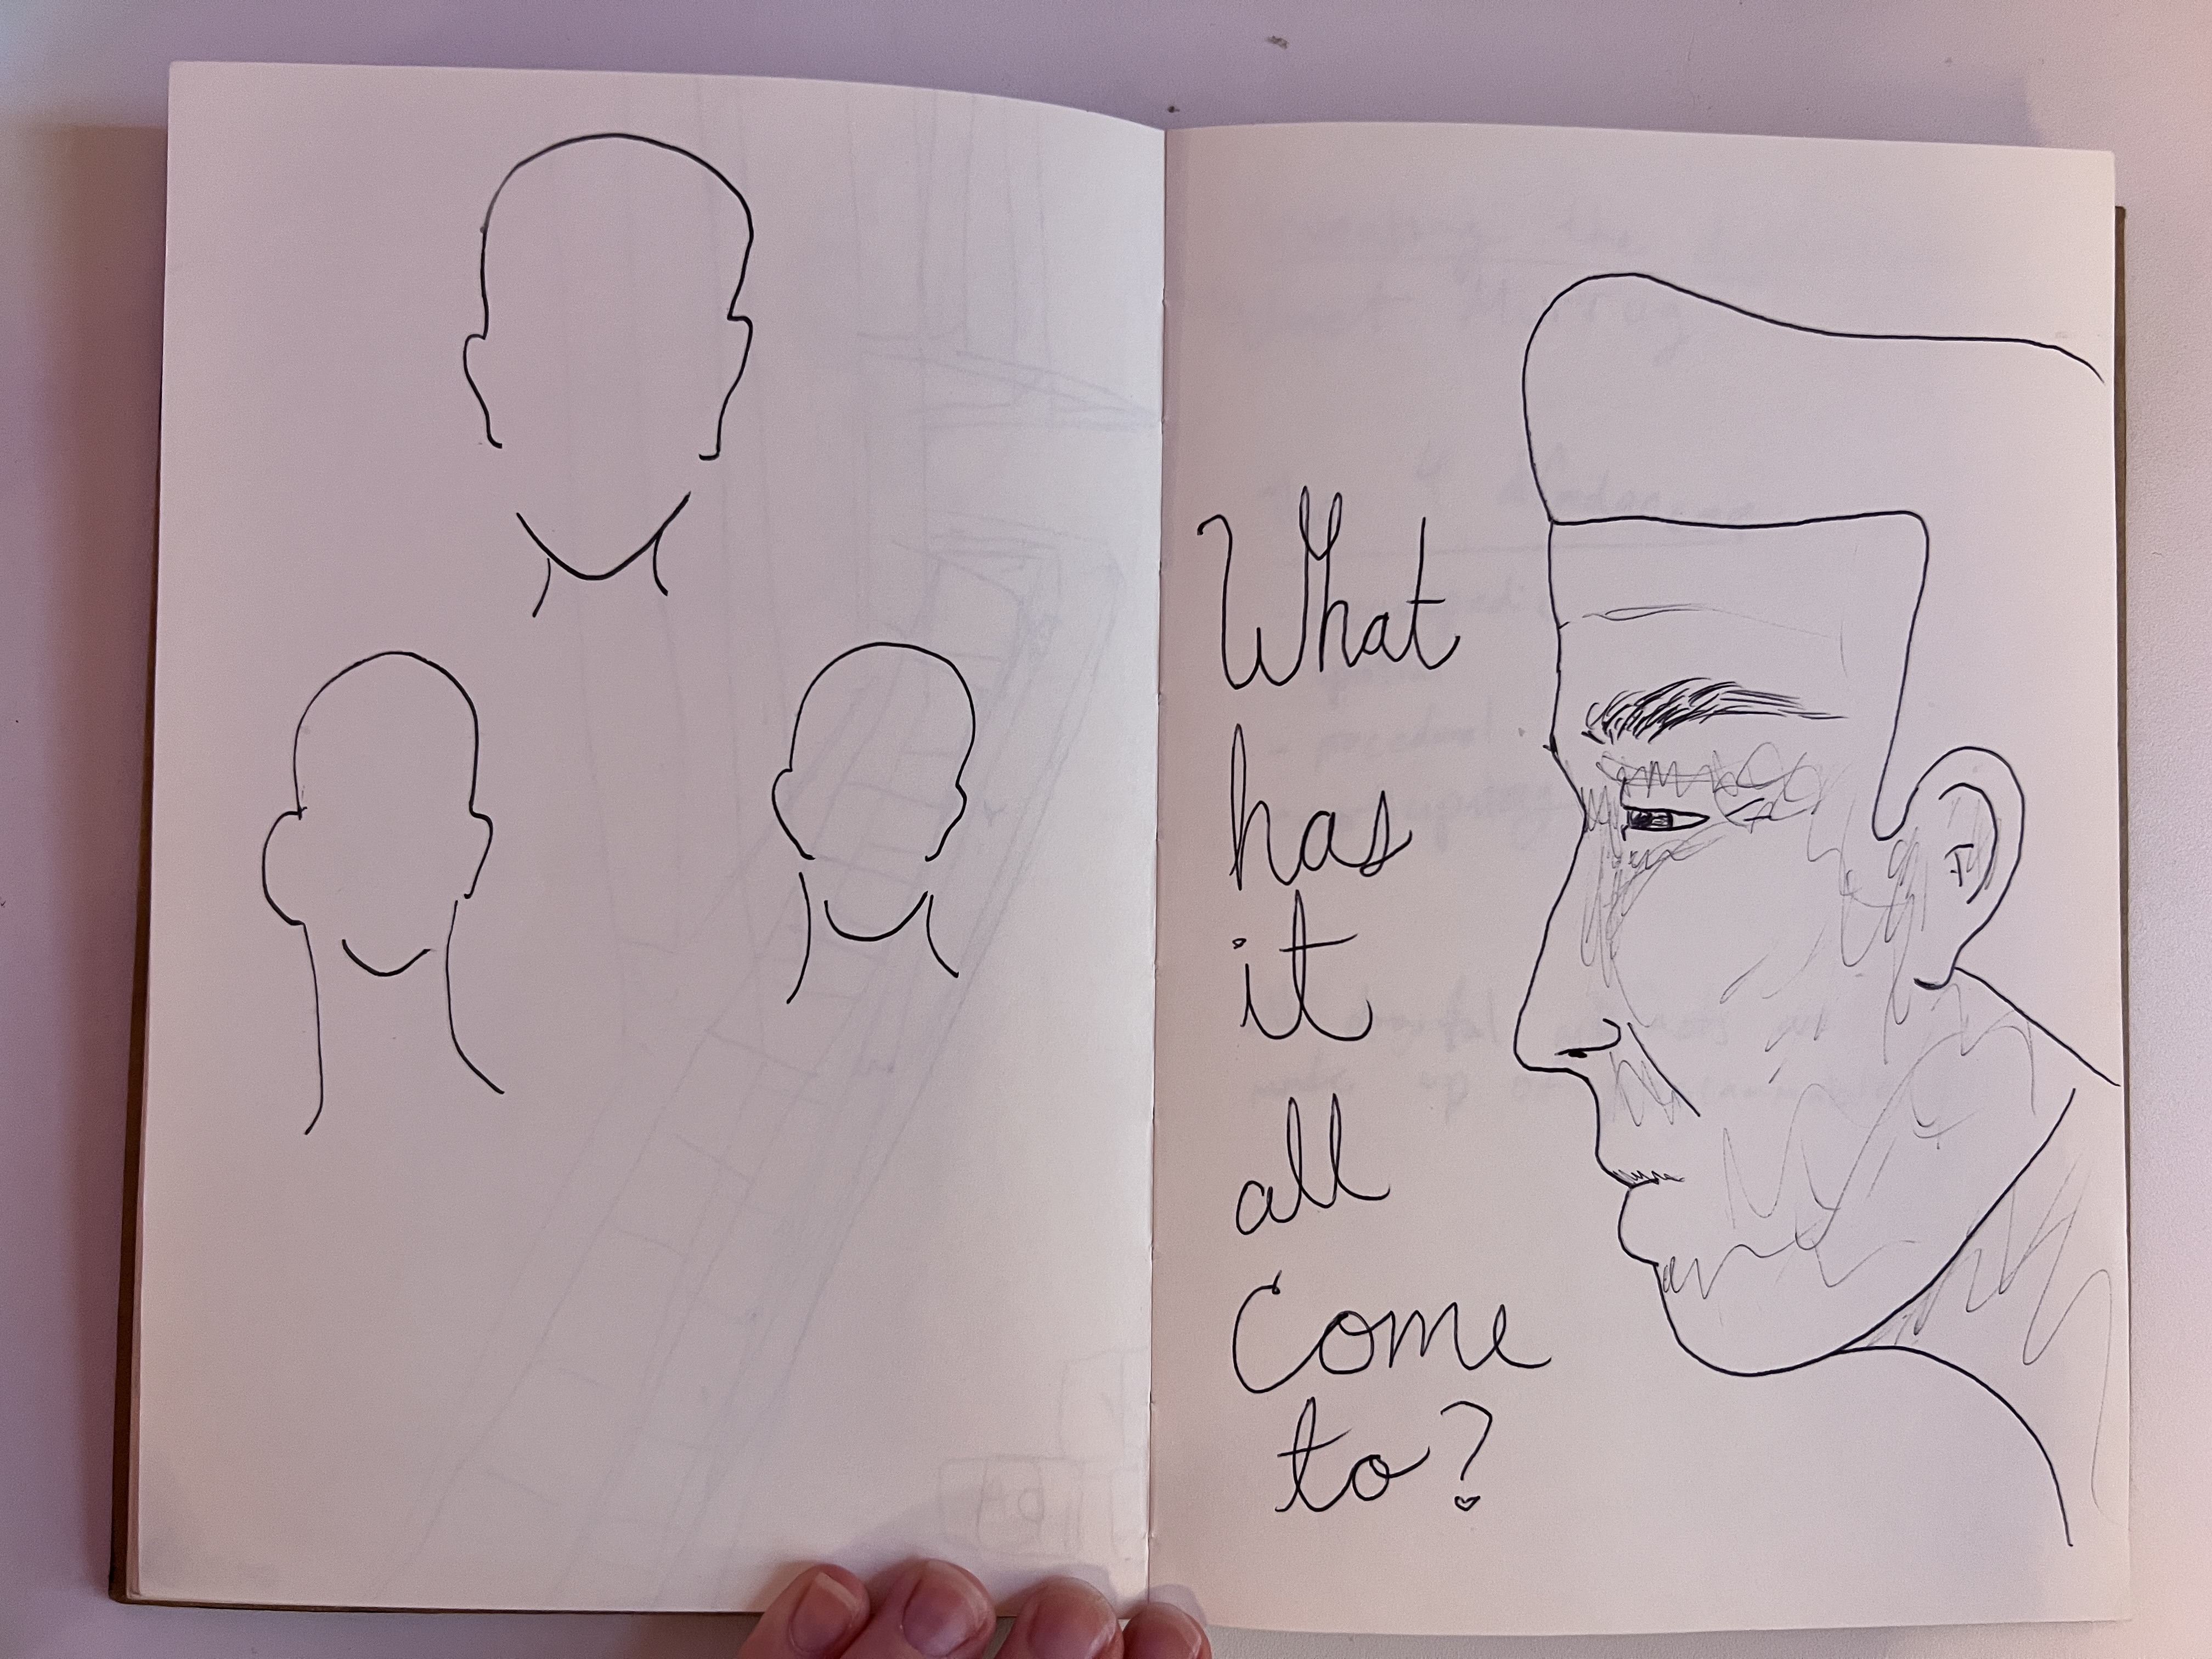 What
has
it
all
Come
to?